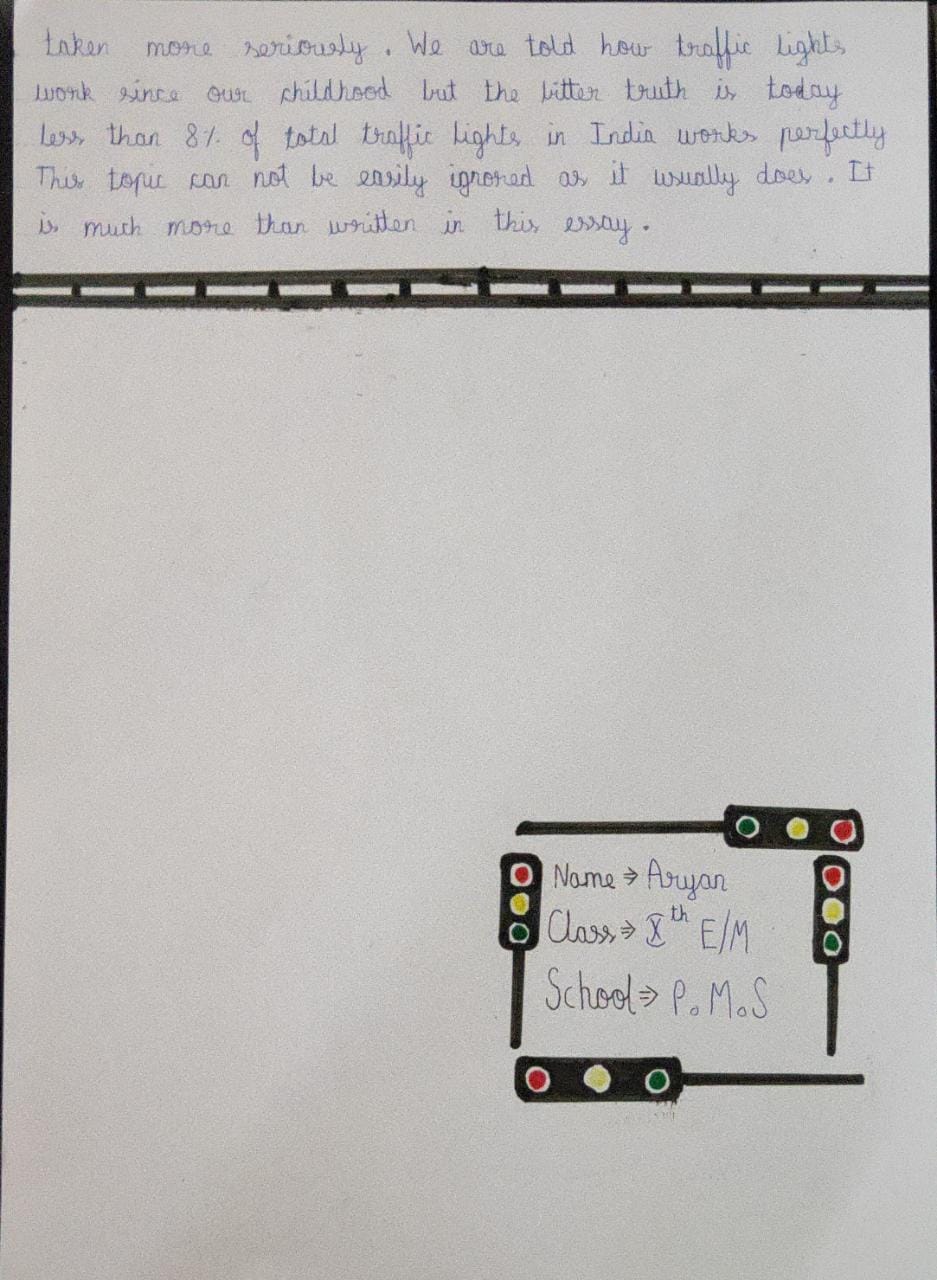 taken more seriously. We are told how traffic lights
work since our childhood but the bitter truth is today
less than 8% of total traffic lights in India works perfectly
This topic can not be easily ignored as it usually does. It
is much more than written in this essay.
Name ⇒ Aryan
Class ⇒ Xth E/M
School ⇒ P.M.S